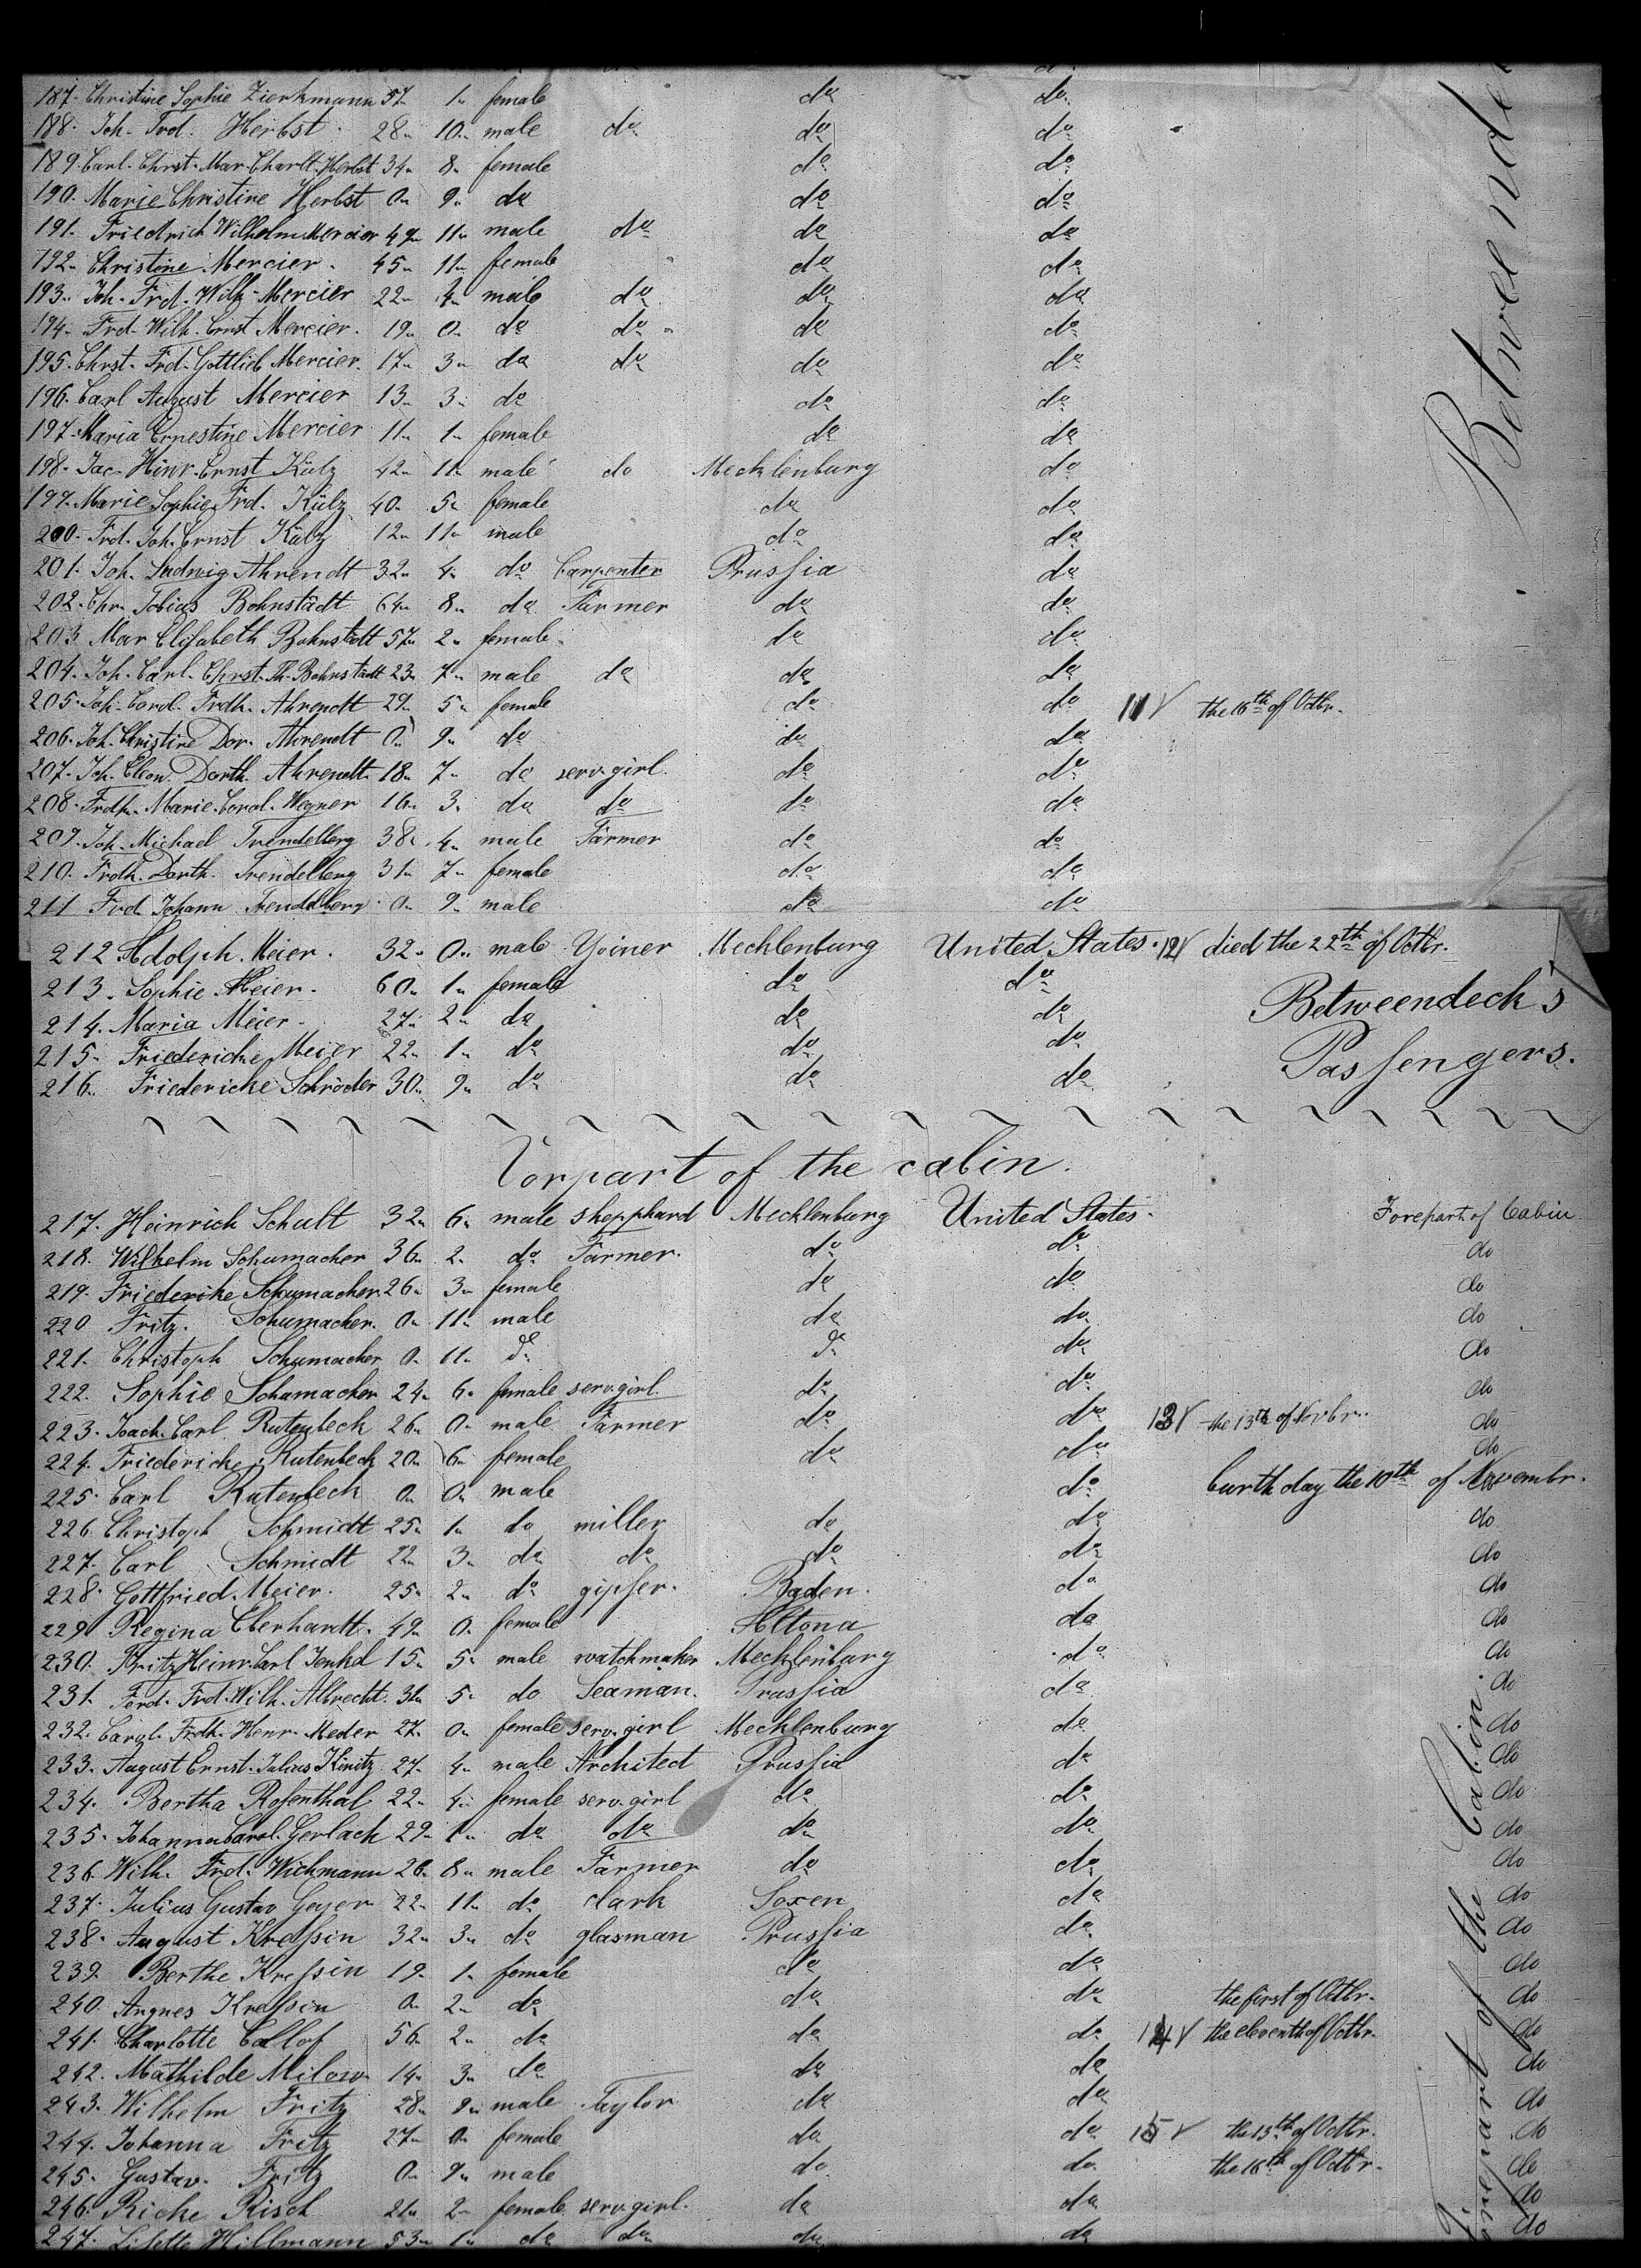 187. Christine Sophie Zierkmann 57 1 female do do
188. Joh. Frd. Herbst 28 10 male do do do
189. Carl. Chrst. Mar. Charlt. Herbst 34 8 female do do
190. Marie Christine Herbst 0 9 do do do
191. Friedrich Wilhelm Mercier 49 11 male do do do
192. Christine Mercier 45 11 female do do
193. Joh. Frd. Wilh. Mercier 22 4 male do do do
194. Frd. Wilh. Ernst Mercier 19 0 do do do do
195. Chrst. Frd. Gottlieb Mercier 17 3 do do do do
196. Carl August Mercier 13 3 do do do
197. Maria Ernestine Mercier 11 1 female do do
198. Jac. Hinr. Ernst Külz 42 11 male do Mecklenburg do
199. Marie Sophie Frd. Külz 40 5 female do do
200. Frd. Joh. Ernst Külz 12 11 male do do
201. Joh. Ludwig Ahrendt 32 4 do Carpenter Prussia do
202. Chr. Tobias Bohnstädt 64 8 do Farmer do do
203 Mar Elisabeth Bohnstädt 57 2 female do do
204. Joh. Carl. Chrst. Th. Bohnstädt 23 7 male do do do
205. Joh. Carol. Frdh. Ahrendt 29 5 female do do 11 the 16th of Octbr.
206. Joh. Christine Dor. Ahrendt 0 9 do do do
207. Joh. Eleon. Dorth. Ahrendt 18 7 do serv. girl do do
208. Frdh. Marie Carol. Wegner 16 3 do do do do
209. Joh. Michael Trendelberg 38 4 male Farmer do do
210. Frdh. Dorth. Trendelberg 31 7 female do do
211 Frd. Johann Trendelberg 0 9 male do do
Betweende
212 Adolph Meier 32 0 male Yoiner Mecklenburg United States. 12 died the 22th of Octbr.
213. Sophie Meier 60 1 female do do
214. Maria Meier 27 2 do do do
215. Friedericke Meier 22 1 do do do
216. Friedericke Schröder 30 9 do do do
Betweendeck's
Passengers.
Vorpart of the cabin.
217. Heinrich Schult 32 6 male shepphard Mecklenburg United States. Forepart of Cabin
218. Wilhelm Schumacher 36 2 do Farmer do do do
219. Friederike Schumacher 26 3 female do do do
220 Fritz Schumacher 0 11 male do do do
221. Christoph Schumacher 0 11 do do do do
222. Sophie Schumacher 24 6 female serv. girl do do do
223. Joach. Carl Rutenbeck 26 0 male Farmer do do 13 the 13th of Novbr. do
224. Friedericke Rutenbeck 20 6 female do do do
225. Carl Rutenbeck 0 0 male do burth day the 10th of Novembr.
226. Christoph Schmidt 25 1 do miller do do do
227. Carl Schmidt 22 3 do do do do do
228. Gottfried Meier 25 2 do gipser Baden do do
229 Regina Eberhardt 49 0 female Altona do do
230. Fritz Heinr. Carl 15 5 male watchmaker Mecklenburg do do
231. Ferd. Frd. Wilh. Albrecht 31 5 do Seaman Prussia do do
232. Carol. Frdh. Henr. Meder 27 0 female serv. girl Mecklenburg do do
233. August Ernst Julius 27 4 male Architect Prussia do do
234. Bertha Rosenthal 22 4 female serv. girl do do do
235. Johanna Carol. Gerlach 29 1 do do do do do
236. Wilh. Frd. Wichmann 26 8 male Farmer do do do
237. Julius Gustav Geyer 22 11 do clark Soxen do do
238. August Kressin 32 3 do glasman Prussia do do
239. Berthe Kressin 19 1 female do do do
240. Angnes Kressin 0 2 do do do the first of Octbr. do
241. Charlotte Collof 56 2 do do do 14 the eleventh of Octbr. do
242. Mathilde Milow 14 3 do do do do
243. Wilhelm Fritz 28 9 male Taylor do do do
244. Johanna Fritz 27 0 female do do 15 the 13th of Octbr. do
245. Gustav Fritz 0 9 male do do the 16th of Octbr. do
246. Rieke Risch 21 2 female serv. girl do do do
247. Lisette Hillmann 53 1 do do do do do
Forepart of the Cabin.